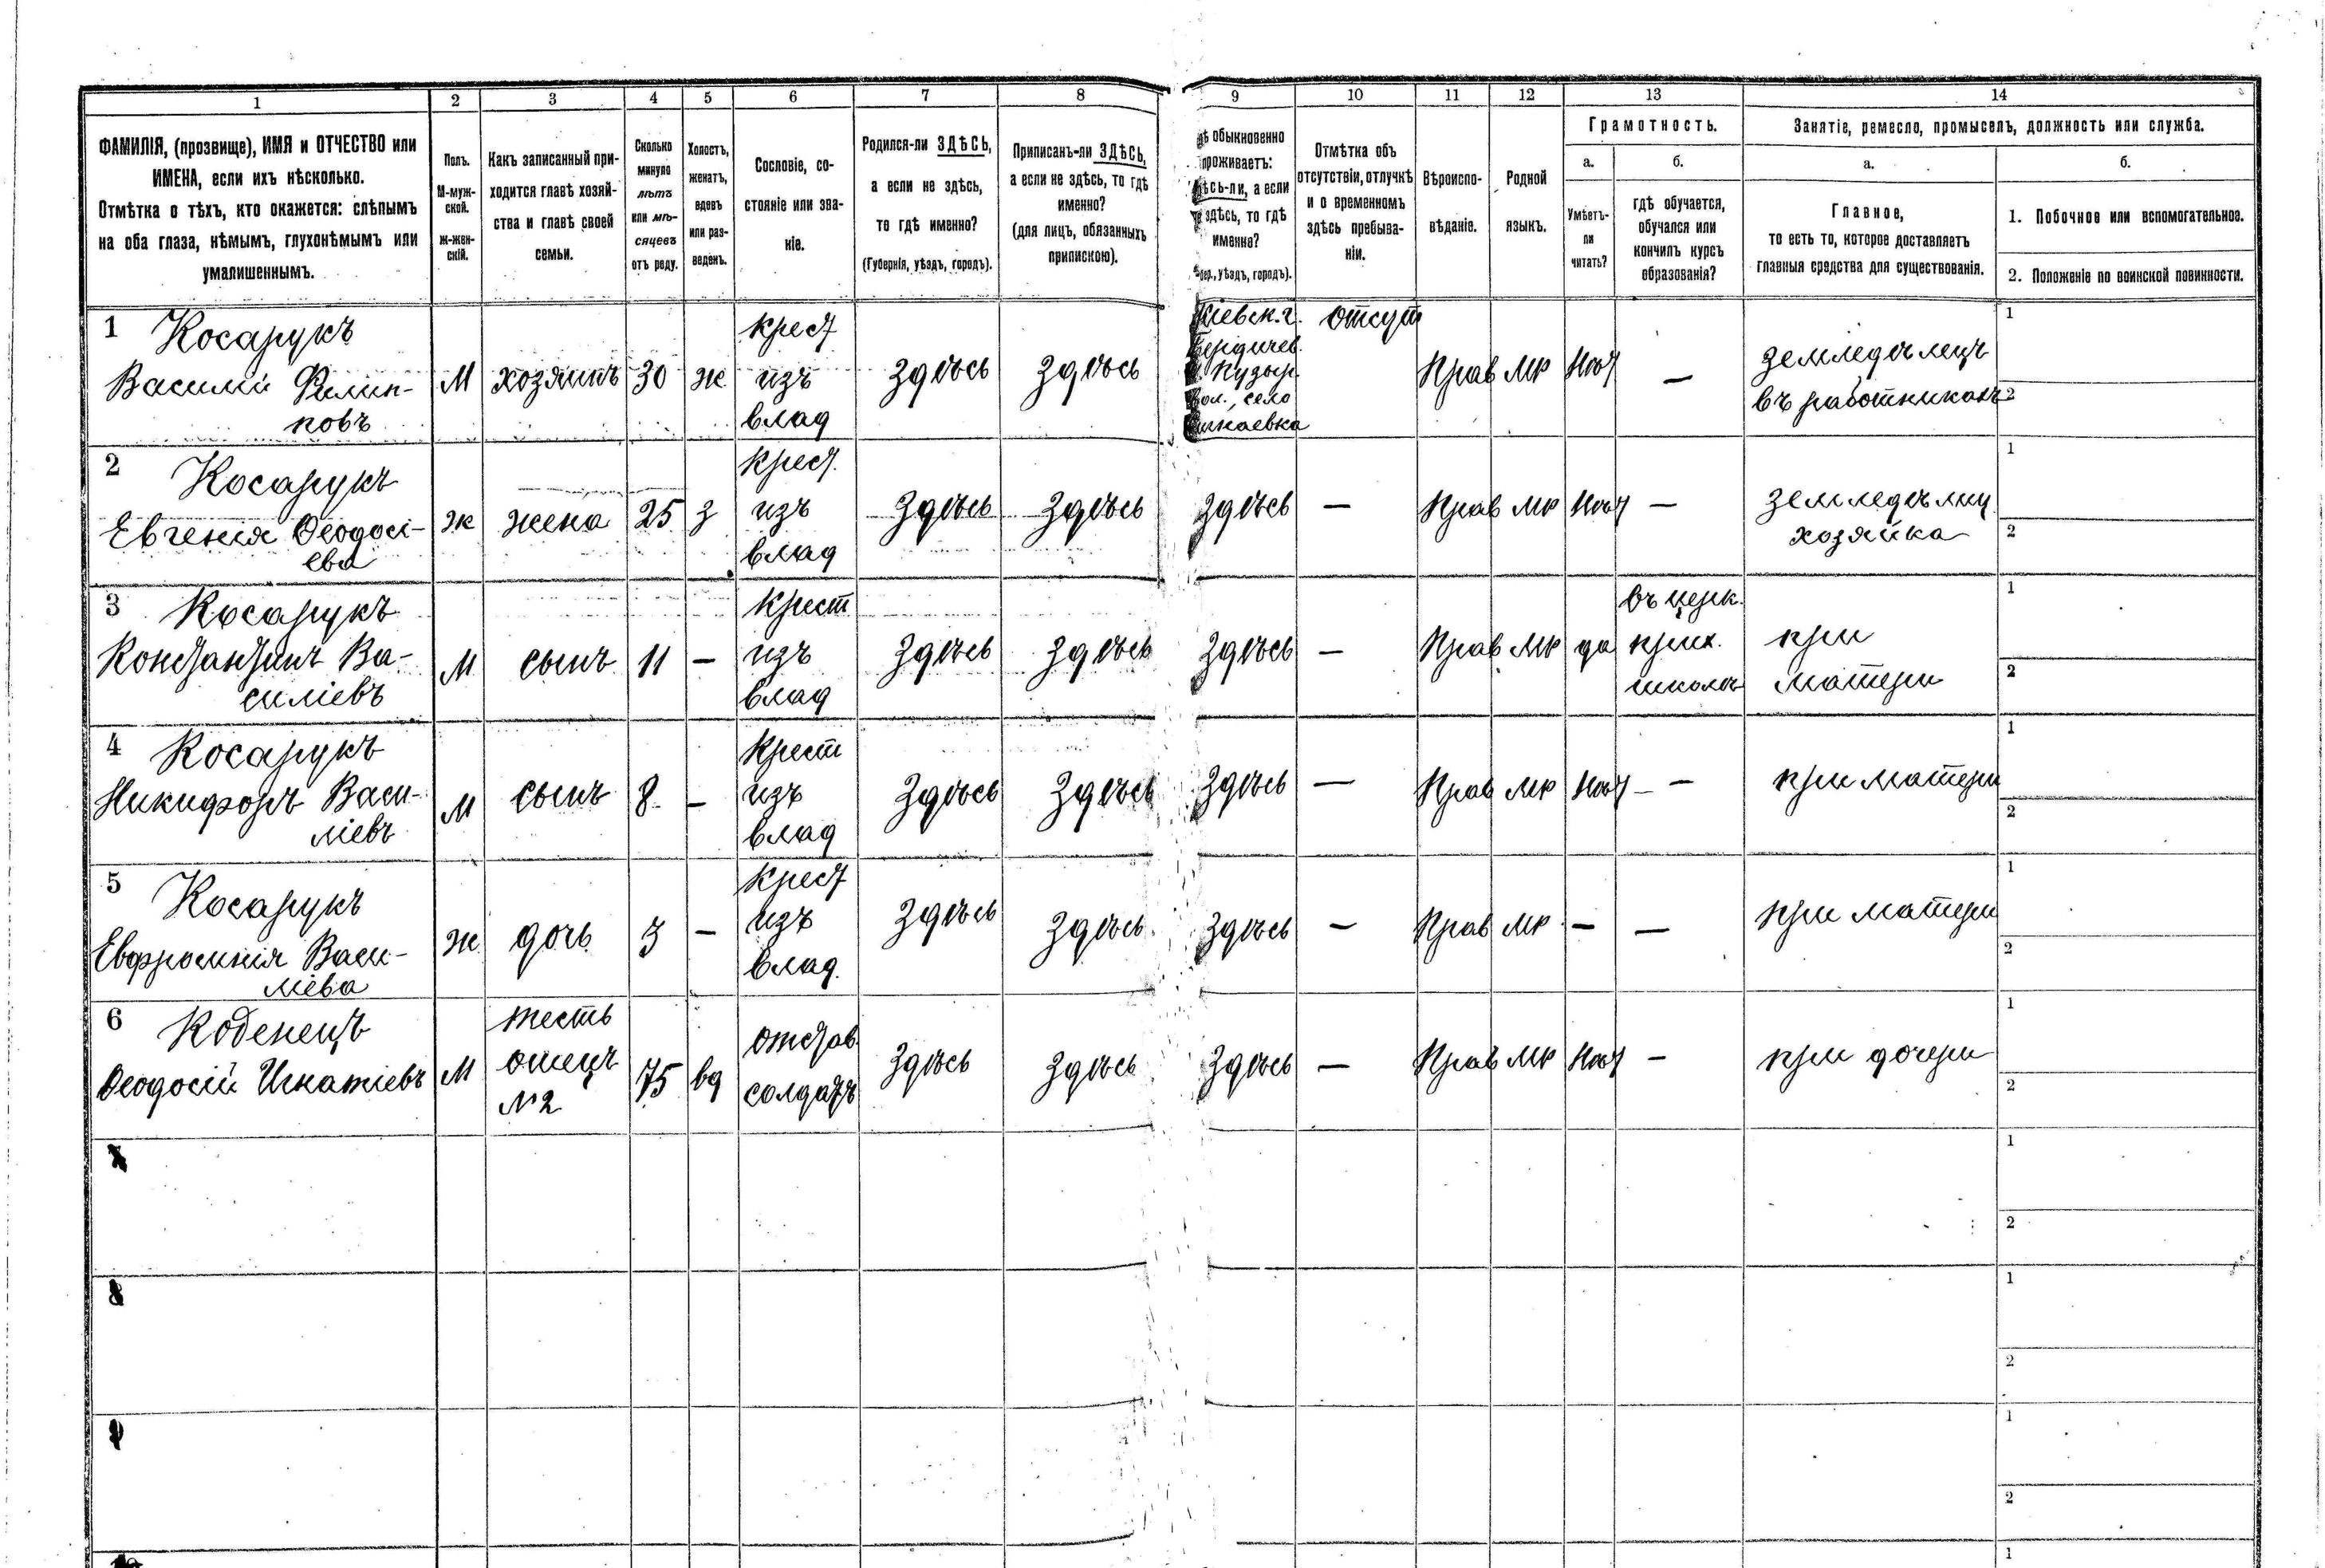 1 2 3 4 5 6 7 8 9 10 11 12 13 14
ФАМИЛІЯ, (прозвище), ИМЯ и ОТЧЕСТВО или
ИМЕНА, если ихъ нѣсколько.
Отмѣтка о тѣхъ, кто окажется: слѣпымъ
на оба глаза, нѣмымъ, глухонѣмымъ или
умалишеннымъ.
Полъ.
М-муж-
ской.
ж-жен-
скій.
Какъ записанный при-
ходится главѣ хозяй-
ства и главѣ своей
семьи.
Сколько
минуло
лѣтъ
или мѣ-
сяцевъ
отъ роду.
Холостъ,
женатъ,
вдовъ
или раз-
веденъ.
Сословіе, со-
стояніе или зва-
ніе.
Родился-ли ЗДѢСЬ,
а если не здѣсь,
то гдѣ именно?
(Губернія, уѣздъ, городъ).
Приписанъ-ли ЗДѢСЬ,
а если не здѣсь, то гдѣ
именно?
(для лицъ, обязанныхъ
припискою).
обыкновенно
проживаетъ:
а если
здѣсь, то гдѣ
именно?
уѣздъ, городъ).
Отмѣтка объ
отсутствіи, отлучкѣ
и о временномъ
здѣсь пребыва-
ніи.
Вѣроиспо-
вѣданіе.
Родной
языкъ.
Грамотность.
а.
Умѣетъ-
ли
читать?
б.
гдѣ обучается,
обучался или
кончилъ курсъ
образованія?
Занятіе, ремесло, промыселъ, должность или служба.
а.
Главное,
то есть то, которое доставляетъ
главныя средства для существованія.
б.
1. Побочное или вспомогательное.
2. Положеніе по воинской повинности.
1 Косарукъ
Василий Филип-
повъ
М
хозяинъ
30
ж
крест
изъ
влад
Здѣсь
Здѣсь
Кіевск. г.
Бердичев.
Пузыр.
вол., село
отсут
Прав
мр
нѣт
—
земледѣлецъ
въ работникахъ
1
2
2 Косарукъ
Евгенія Ѳеодосі-
ева
ж
жена
25
з
крест.
изъ
влад
Здѣсь
Здѣсь
Здѣсь
—
Прав
мр
нѣт
—
земледѣлиц
хозяйка
1
2
3 Косарукъ
Константинъ Ва-
силіевъ
М
сынъ
11
—
крест
изъ
влад
Здѣсь
Здѣсь
Здѣсь
—
Прав
мр
да
въ церк.
прих.
школѣ
при
матери
1
2
4 Косарукъ
Никифоръ Васи-
ліевъ
М
сынъ
8
—
Крест
изъ
влад
Здѣсь
Здѣсь
Здѣсь
—
Прав
мр
нѣт
—
при матери
1
2
5 Косарукъ
Евфросинія Васи-
ліева
ж
дочь
3
—
крест
изъ
влад.
Здѣсь
Здѣсь
Здѣсь
—
Прав
мр
—
—
при матери
1
2
6 Коденецъ
Ѳеодосій Игнатіевъ
М
тесть
отецъ
№2
75
вд
отстав
солдатъ
Здѣсь
Здѣсь
Здѣсь
—
Прав
мр
нѣт
—
при дочери
1
2
7
1
2
8
1
2
9
1
2
1